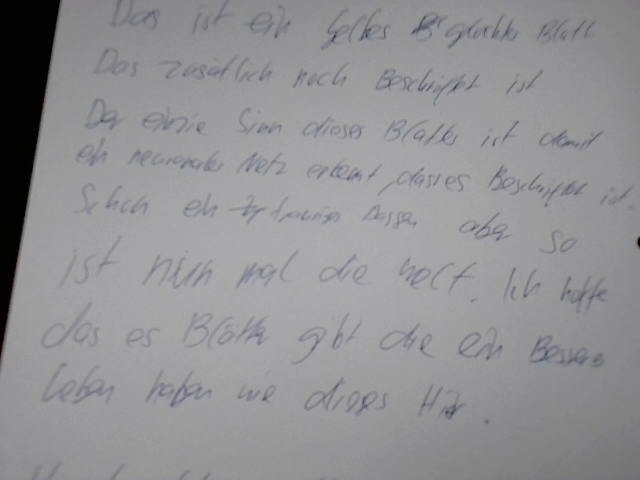 Das ist ein Gelbes Blatt
Das zusätlich noch Beschriftet ist
Der einzie Sinn dieses Blattes ist damit
ein neuronales Netz erkennt, dass es Beschriftet ist.
Schon ein trauriges aber so
ist nun mal die welt. Ich hoffe
das es Blätter gibt die ein Besseres
Leben haben wie dieses Hir.